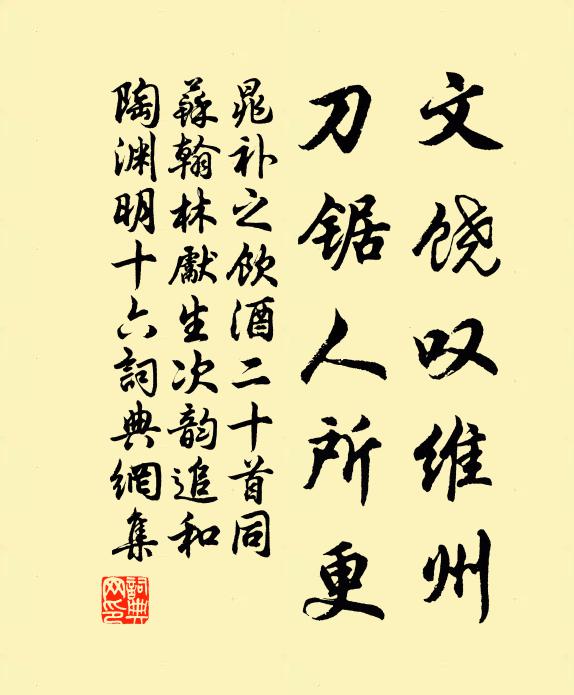 文饶叹维州
刀锯人所更
晁补之饮酒二十首同
蘇翰林獻生次韵追和
陶渊明十六詞典網集
詞典網印